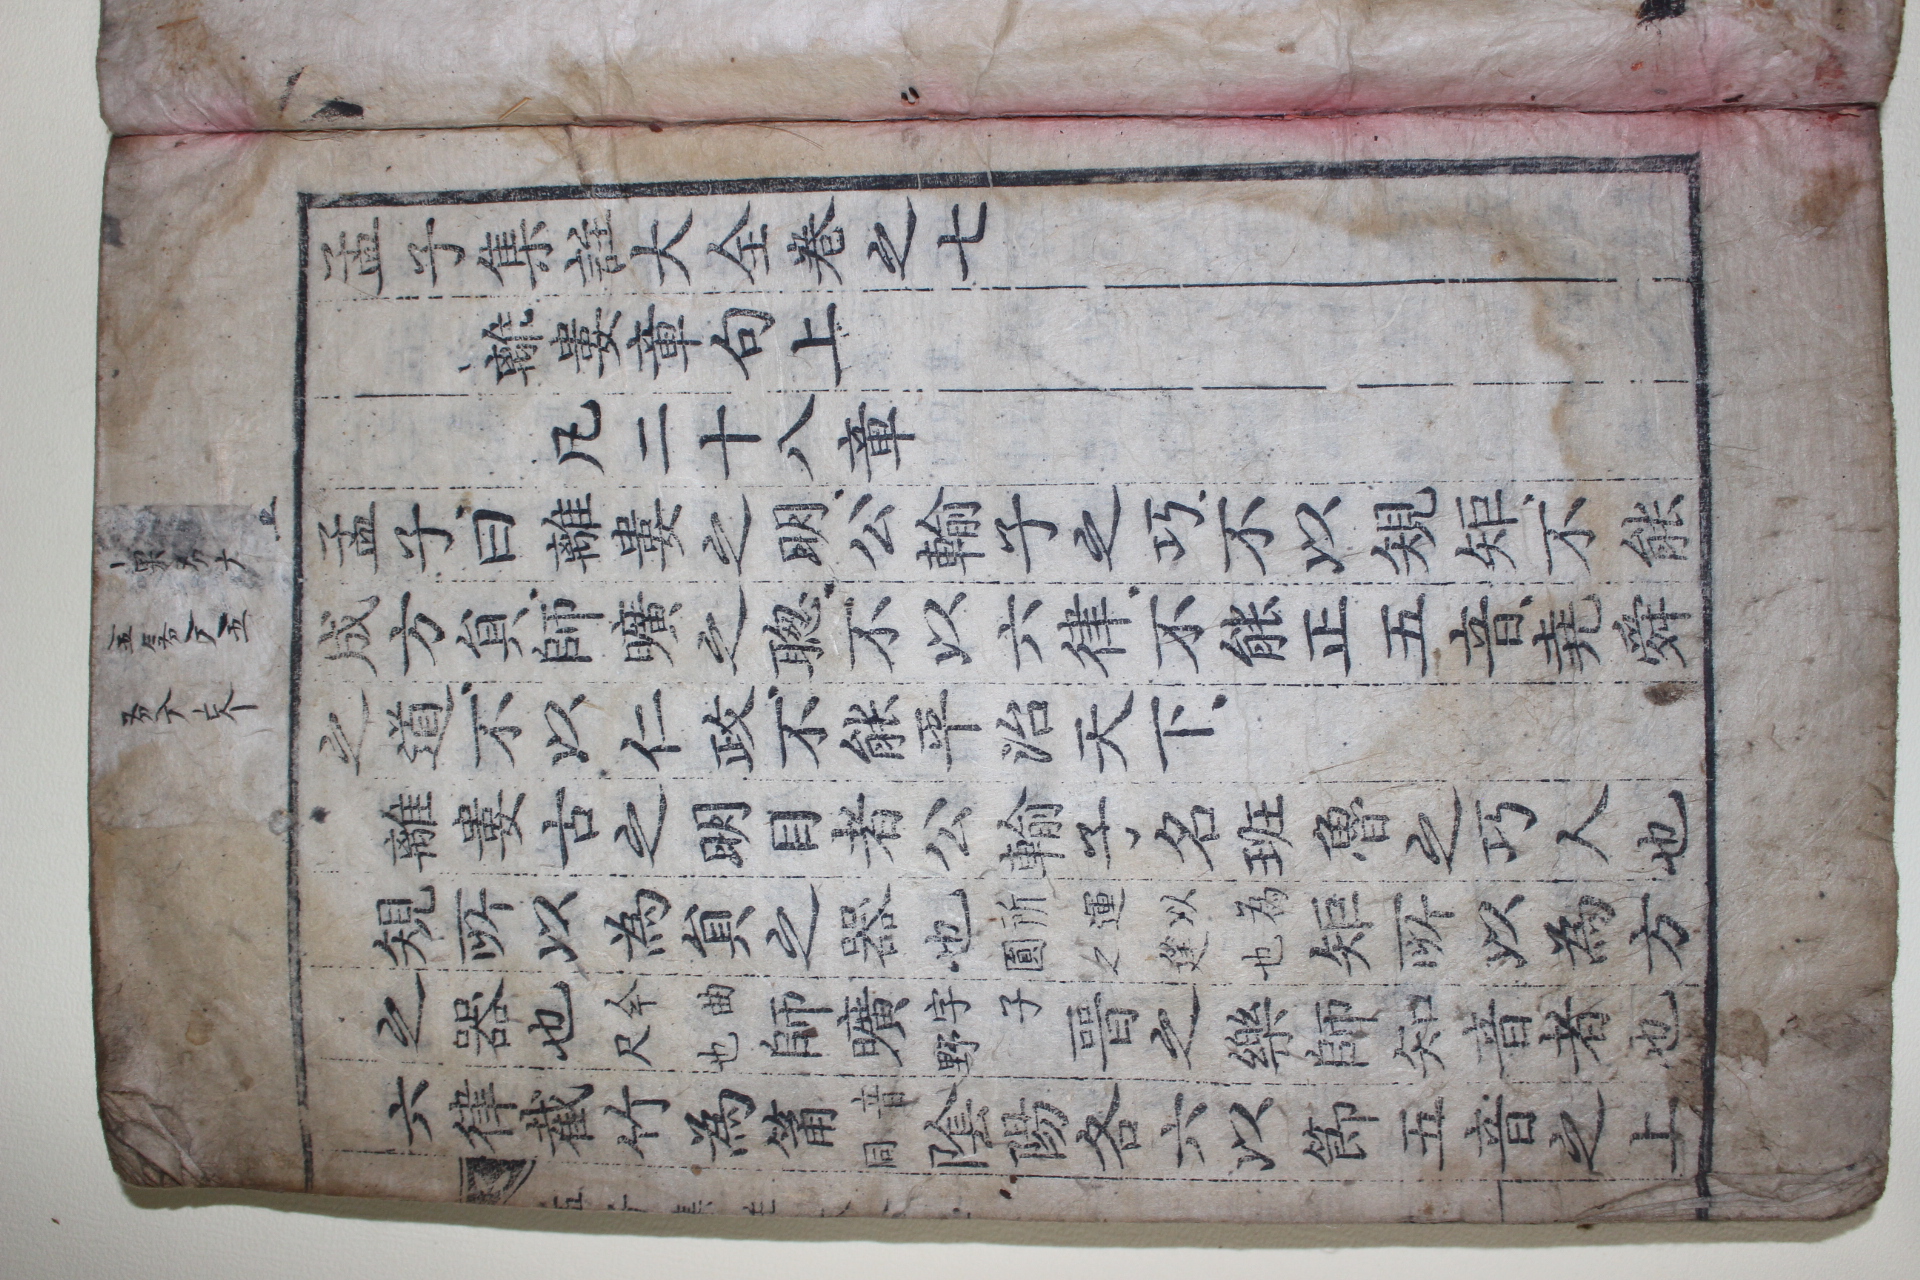 孟子集註大全卷之七
離婁章句上
凡二十八章
孟子曰離婁之明公輸子之巧不以規矩不能
成方員師曠之聰不以六律不能正五音堯舜
之道不以仁政不能平治天下
離婁古之明目者公輸子名班魯之巧人也
規所以為員之器也所運以為圓之也矩所以為方
之器也今曲尺也師曠字子野晉之樂師知音者也
六律截竹為筩音同陰陽各六以節五音之上